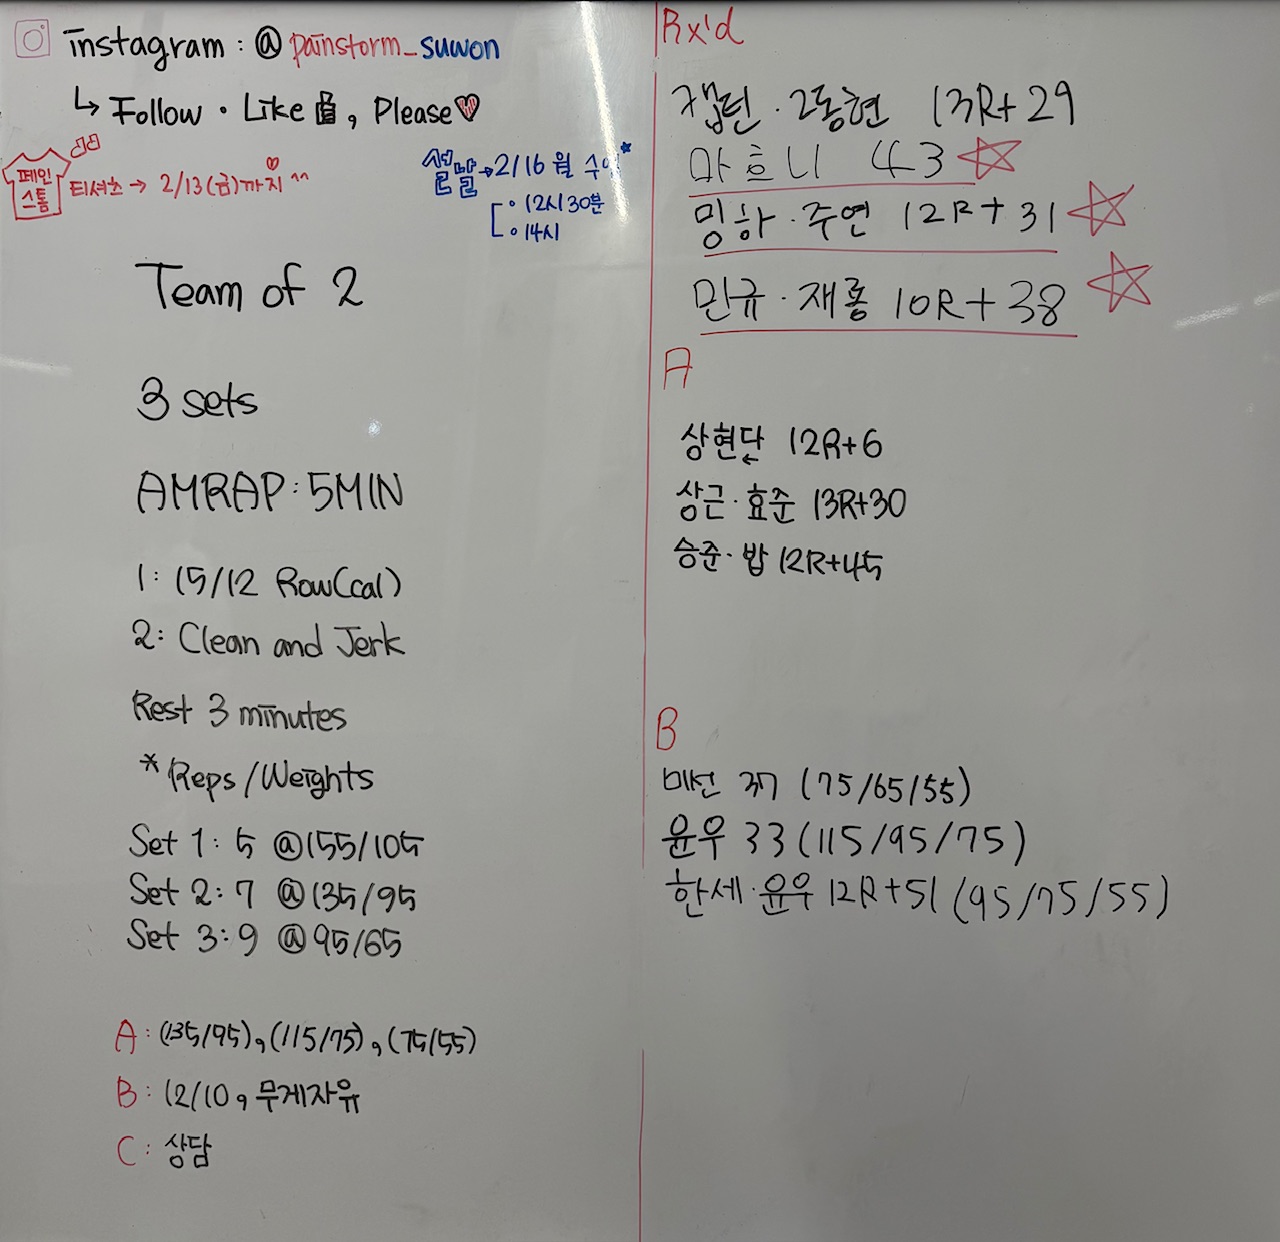 instagram : @ painstorm_suwon
↳ Follow · Like , Please♡
페인
스톰
티셔츠 → 2/13(금)까지 ^^
설날 → 2/16 월 수업*
· 12시30분
· 14시
Team of 2
3 sets
AMRAP : 5MIN
1 : 15/12 Row(cal)
2 : Clean and Jerk
Rest 3 minutes
* Reps/Weights
Set 1 : 5 @155/105
Set 2 : 7 @135/95
Set 3 : 9 @95/65
A : (135/95), (115/75), (75/55)
B : 12/10, 무게자유
C : 상담
Rx'd
캡틴 · 2동현 13R+29
마흐니 43 ☆
밍하 · 주연 12R+31 ☆
민규 · 재롱 10R+38 ☆
A
상현단 12R+6
상근 · 효준 13R+30
승준 · 밥 12R+45
B
미선 37 (75/65/55)
윤우 33 (115/95/75)
한세 · 윤우 12R+51 (95/75/55)